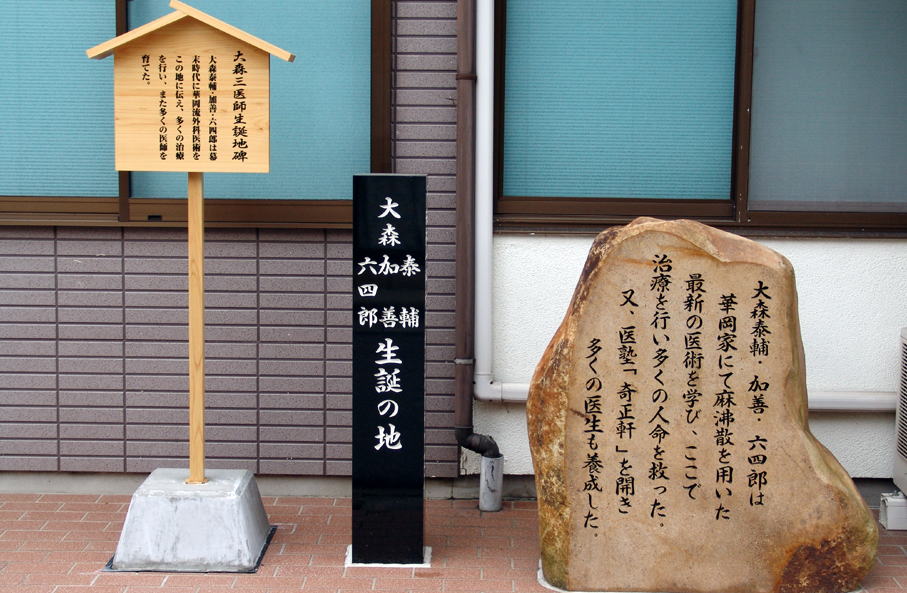 大森三医師生誕地碑
大森泰輔・加善・六四郎は幕
末時代に華岡流外科医術を
この地に伝え、多くの治療
を行い、また多くの医師を
育てた。
大森
泰輔
加善
六四郎
生誕の地
大森泰輔・加善・六四郎は
華岡家にて麻沸散を用いた
最新の医術を学び、ここで
治療を行い多くの人命を救った。
又、医塾「奇正軒」を開き
多くの医生も養成した。